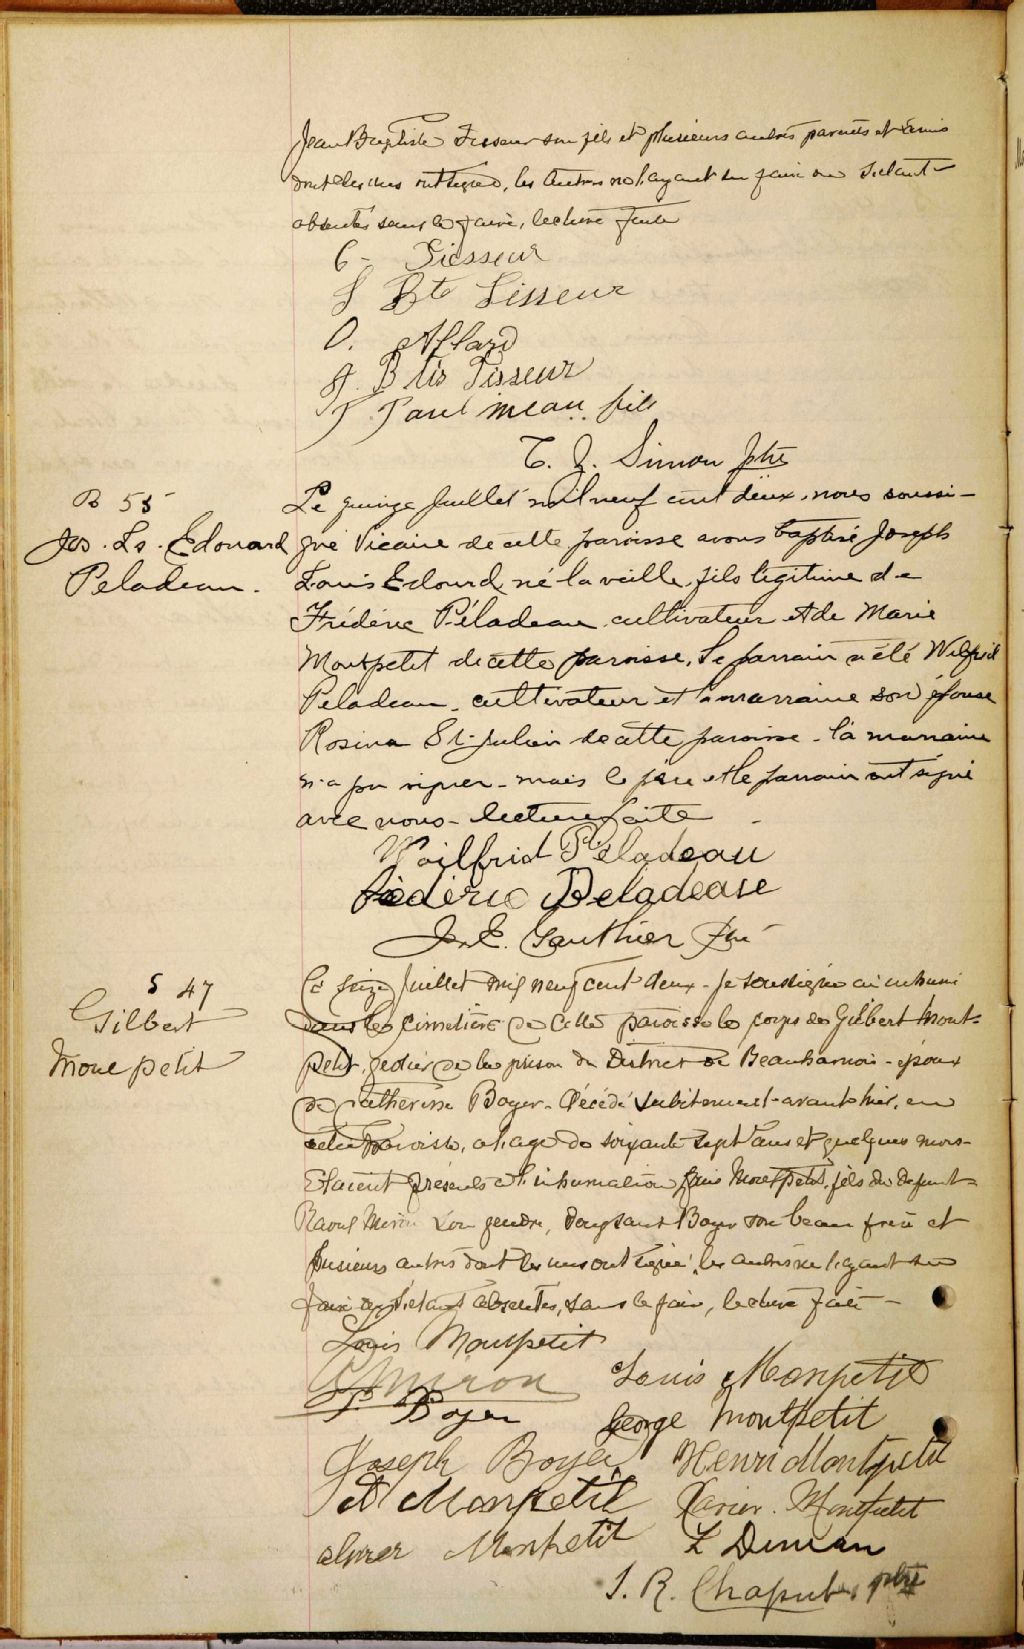 Jean Baptiste Tisseur son fils et plusieurs autres parents et amis
dont les uns ont signé, les autres ne l'ayant su faire ou s'étant
absentés sans le faire, lecture faite
C - Tisseur
J Bte Tisseur
O. Allard
J. B tis Tisseur
T. Z. Simon ptre
B 55
Jos. Ls. Edouard
Peladeau.
Le quinze Juillet mil neuf cent deux, nous soussi-
gné Vicaire de cette paroisse avons baptisé Joseph
Louis Edourd, né la veille, fils légitime de
Frédéric Péladeau, cultivateur et de Marie
Montpetit de cette paroisse. Le parrain a été Wilfrid
Peladeau, cultivateur et la marraine son épouse
Rosina St-Julien de cette paroisse - la marraine
n'a pu signer - mais le père et le parrain ont signé
avec nous - lecture faite
Woilfrid Péladeau
Fédéric Peladeau
J. E. Gauthier Ptre
S 47
Gilbert
Montpetit
Le seize Juillet mil neuf cent deux - Je soussigné ai inhumé
dans le cimetière de cette paroisse le corps de Gilbert Mont-
petit, geôlier de la prison du District de Beauharnois - époux
de Catherine Boyer - décédé subitement avant hier, en
cette Paroisse, à l'age de soixante sept ans et quelques mois -
Etaient présents à l'inhumation Louis Montpetit, fils du défunt -
Raoul Miron son gendre, Boyer son beau frère et
plusieurs autres dont les uns ont signé, les autres ne l'ayant su
faire ou s'étant absentés, sans le faire, lecture faite -
Louis Montpetit
Miron Louis Monpetit
P Boyer George Montpetit
Joseph Boyer Henri Montpetit
A Monpetit Xavier. Montpetit
Monpetit
J. R. Chaput, ptre